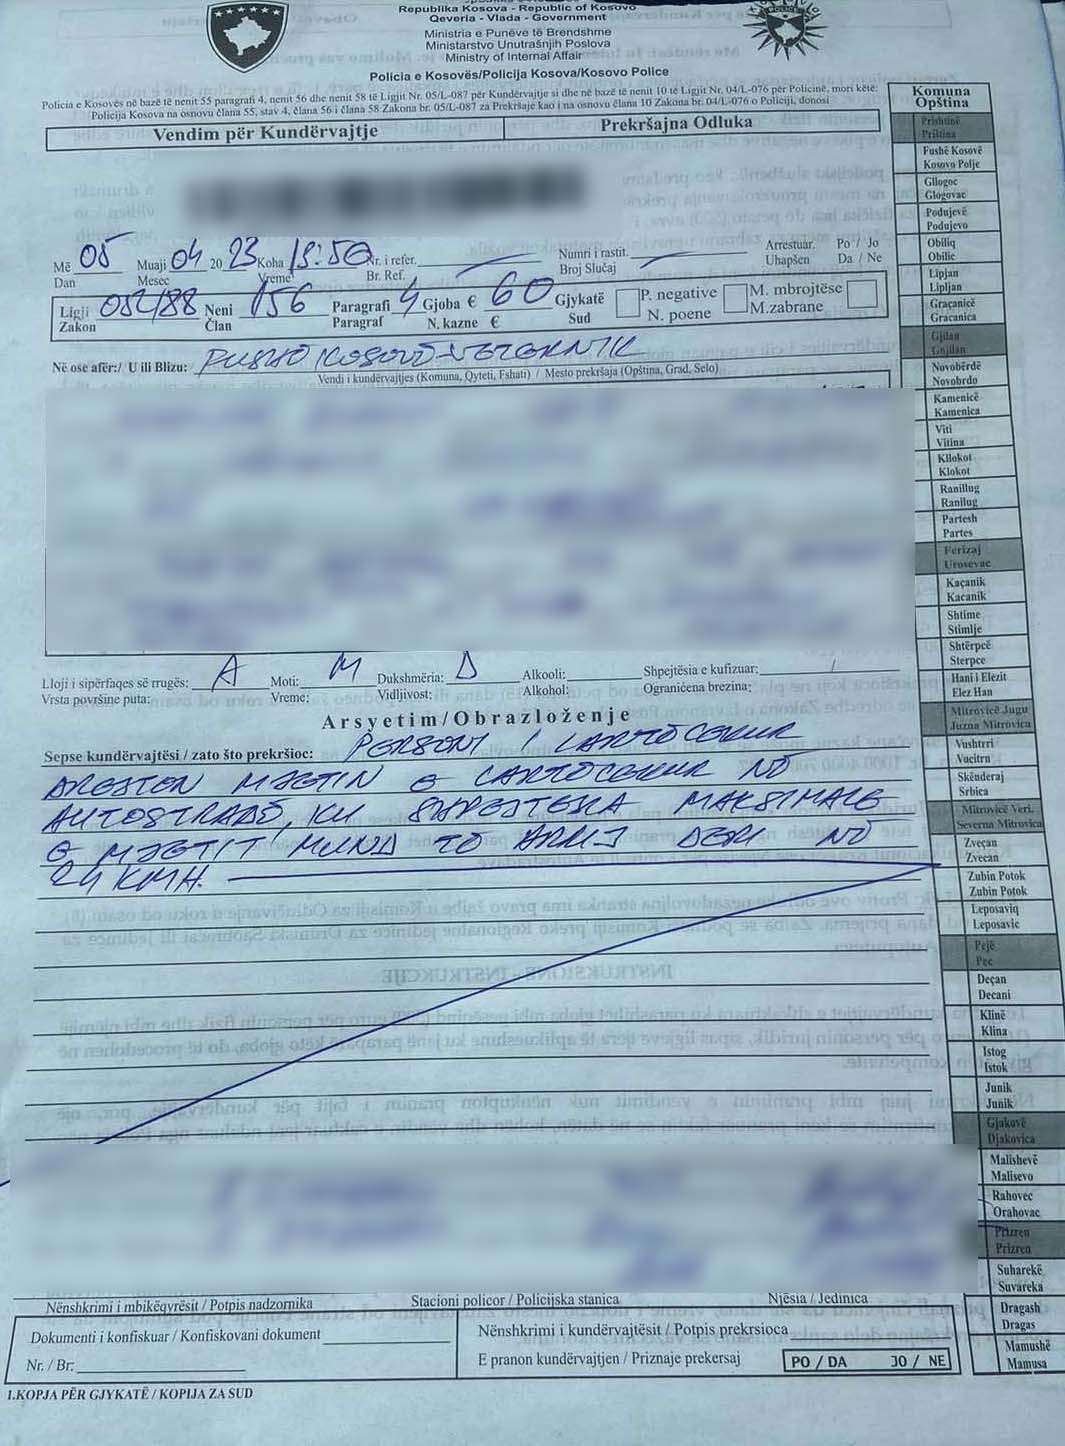 Republika Kosova - Republic of Kosovo
Qeveria - Vlada - Government
Ministria e Punëve të Brendshme
Ministarstvo Unutrašnjih Poslova
Ministry of Internal Affair
Policia e Kosovës/Policija Kosova/Kosovo Police
Policia e Kosovës në bazë të nenit 55 paragrafi 4, nenit 56 dhe nenit 58 të Ligjit Nr. 05/L-087 për Kundërvajtje si dhe në bazë të nenit 10 të Ligjit Nr. 04/L-076 për Policinë, mori këtë:
Policija Kosova na osnovu člana 55, stav 4, člana 56 i člana 58 Zakona br. 05/L-087 za Prekršaje kao i na osnovu člana 10 Zakona br. 04/L-076 o Policiji, donosi
Vendim për Kundërvajtje Prekršajna Odluka
Më 05 Muaji 04 20 23 Koha 13:50 Nr. i refer. Numri i rastit. Arrestuar. Po / Jo
Dan Mesec Vreme Br. Ref. Broj Slučaj Uhapšen Da / Ne
Ligji 052/88 Neni 156 Paragrafi 4 Gjoba € 60 Gjykatë P. negative M. mbrojtëse
Zakon Član Paragraf N. kazne € Sud N. poene M.zabrane
Në ose afër:/ U ili Blizu: FUSHË KOSOVË-VETERNIK
Vendi i kundërvajtjes (Komuna, Qyteti, Fshati) / Mesto prekršaja (Opština, Grad, Selo)
Lloji i sipërfaqes së rrugës: A Moti: M Dukshmëria: D Alkooli: Shpejtësia e kufizuar: /
Vrsta površine puta: Vreme: Vidljivost: Alkohol: Ograničena brezina:
Arsyetim/Obrazloženje
Sepse kundërvajtësi / zato što prekršioc: PERSONI I LARTËCEKUR
DREJTON MJETIN E LARTËCEKUR NË
AUTOSTRADË, KU SHPEJTËSIA MAKSIMALE
E MJETIT MUND TË ARRIJ DERI NË
24 KMH.
Nënshkrimi i mbikëqyrësit / Potpis nadzornika Stacioni policor / Policijska stanica Njësia / Jedinica
Dokumenti i konfiskuar / Konfiskovani dokument
Nr. / Br:
Nënshkrimi i kundërvajtësit / Potpis prekrsioca
E pranon kundërvajtjen / Priznaje prekersaj PO / DA JO / NE
1.KOPJA PËR GJYKATË / KOPIJA ZA SUD
Komuna
Opština
Prishtinë
Priština
Fushë Kosovë
Kosovo Polje
Gllogoc
Glogovac
Podujevë
Podujevo
Obiliq
Obilic
Lipjan
Lipljan
Graçanicë
Gracanica
Gjilan
Gnjilan
Novobërdë
Novobrdo
Kamenicë
Kamenica
Viti
Vitina
Kllokot
Klokot
Ranillug
Ranilug
Partesh
Partes
Ferizaj
Urosevac
Kaçanik
Kacanik
Shtime
Stimlje
Shtërpcë
Sterpce
Hani i Elezit
Elez Han
Mitrovicë Jugu
Juzna Mitrovica
Vushtrri
Vucitrn
Skënderaj
Srbica
Mitrovicë Veri.
Severna Mitrovica
Zveçan
Zvecan
Zubin Potok
Zubin Potok
Leposaviq
Leposavic
Pejë
Pec
Deçan
Decani
Klinë
Klina
Istog
Istok
Junik
Junik
Gjakovë
Djakovica
Malishevë
Malisevo
Rahovec
Orahovac
Prizren
Prizren
Suharekë
Suvareka
Dragash
Dragas
Mamushë
Mamusa